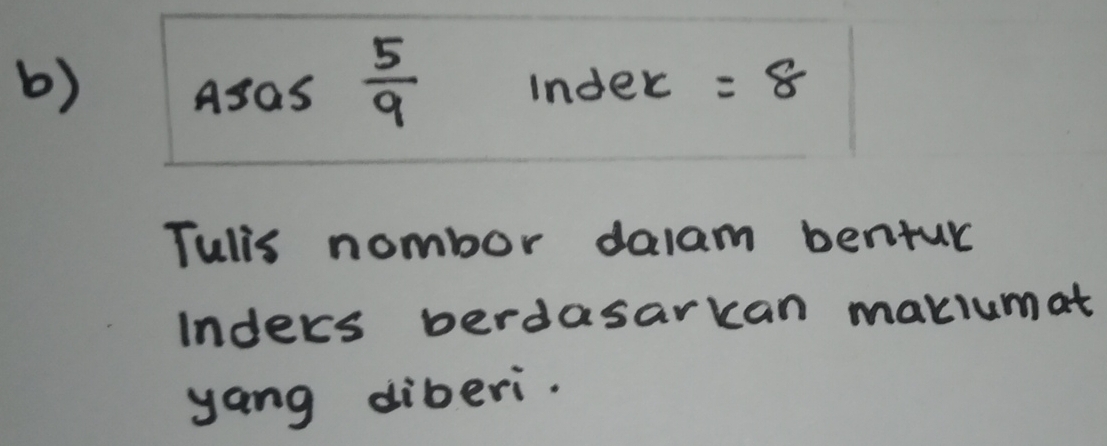 b) Asas 5/9 Index = 8
Tulis nombor dalam bentuk
Indeks berdasarkan maklumat
yang diberi.